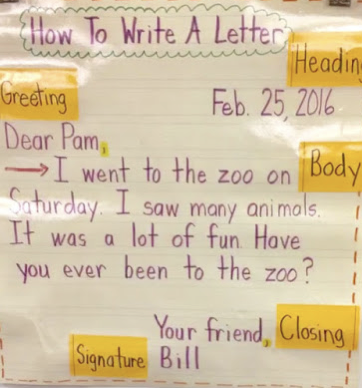 How To Write A Letter
Heading
Greeting
Feb. 25, 2016
Dear Pam,
→ I went to the zoo on
Body
Saturday. I saw many animals.
It was a lot of fun. Have
you ever been to the zoo?
Your friend,
Closing
Signature
Bill